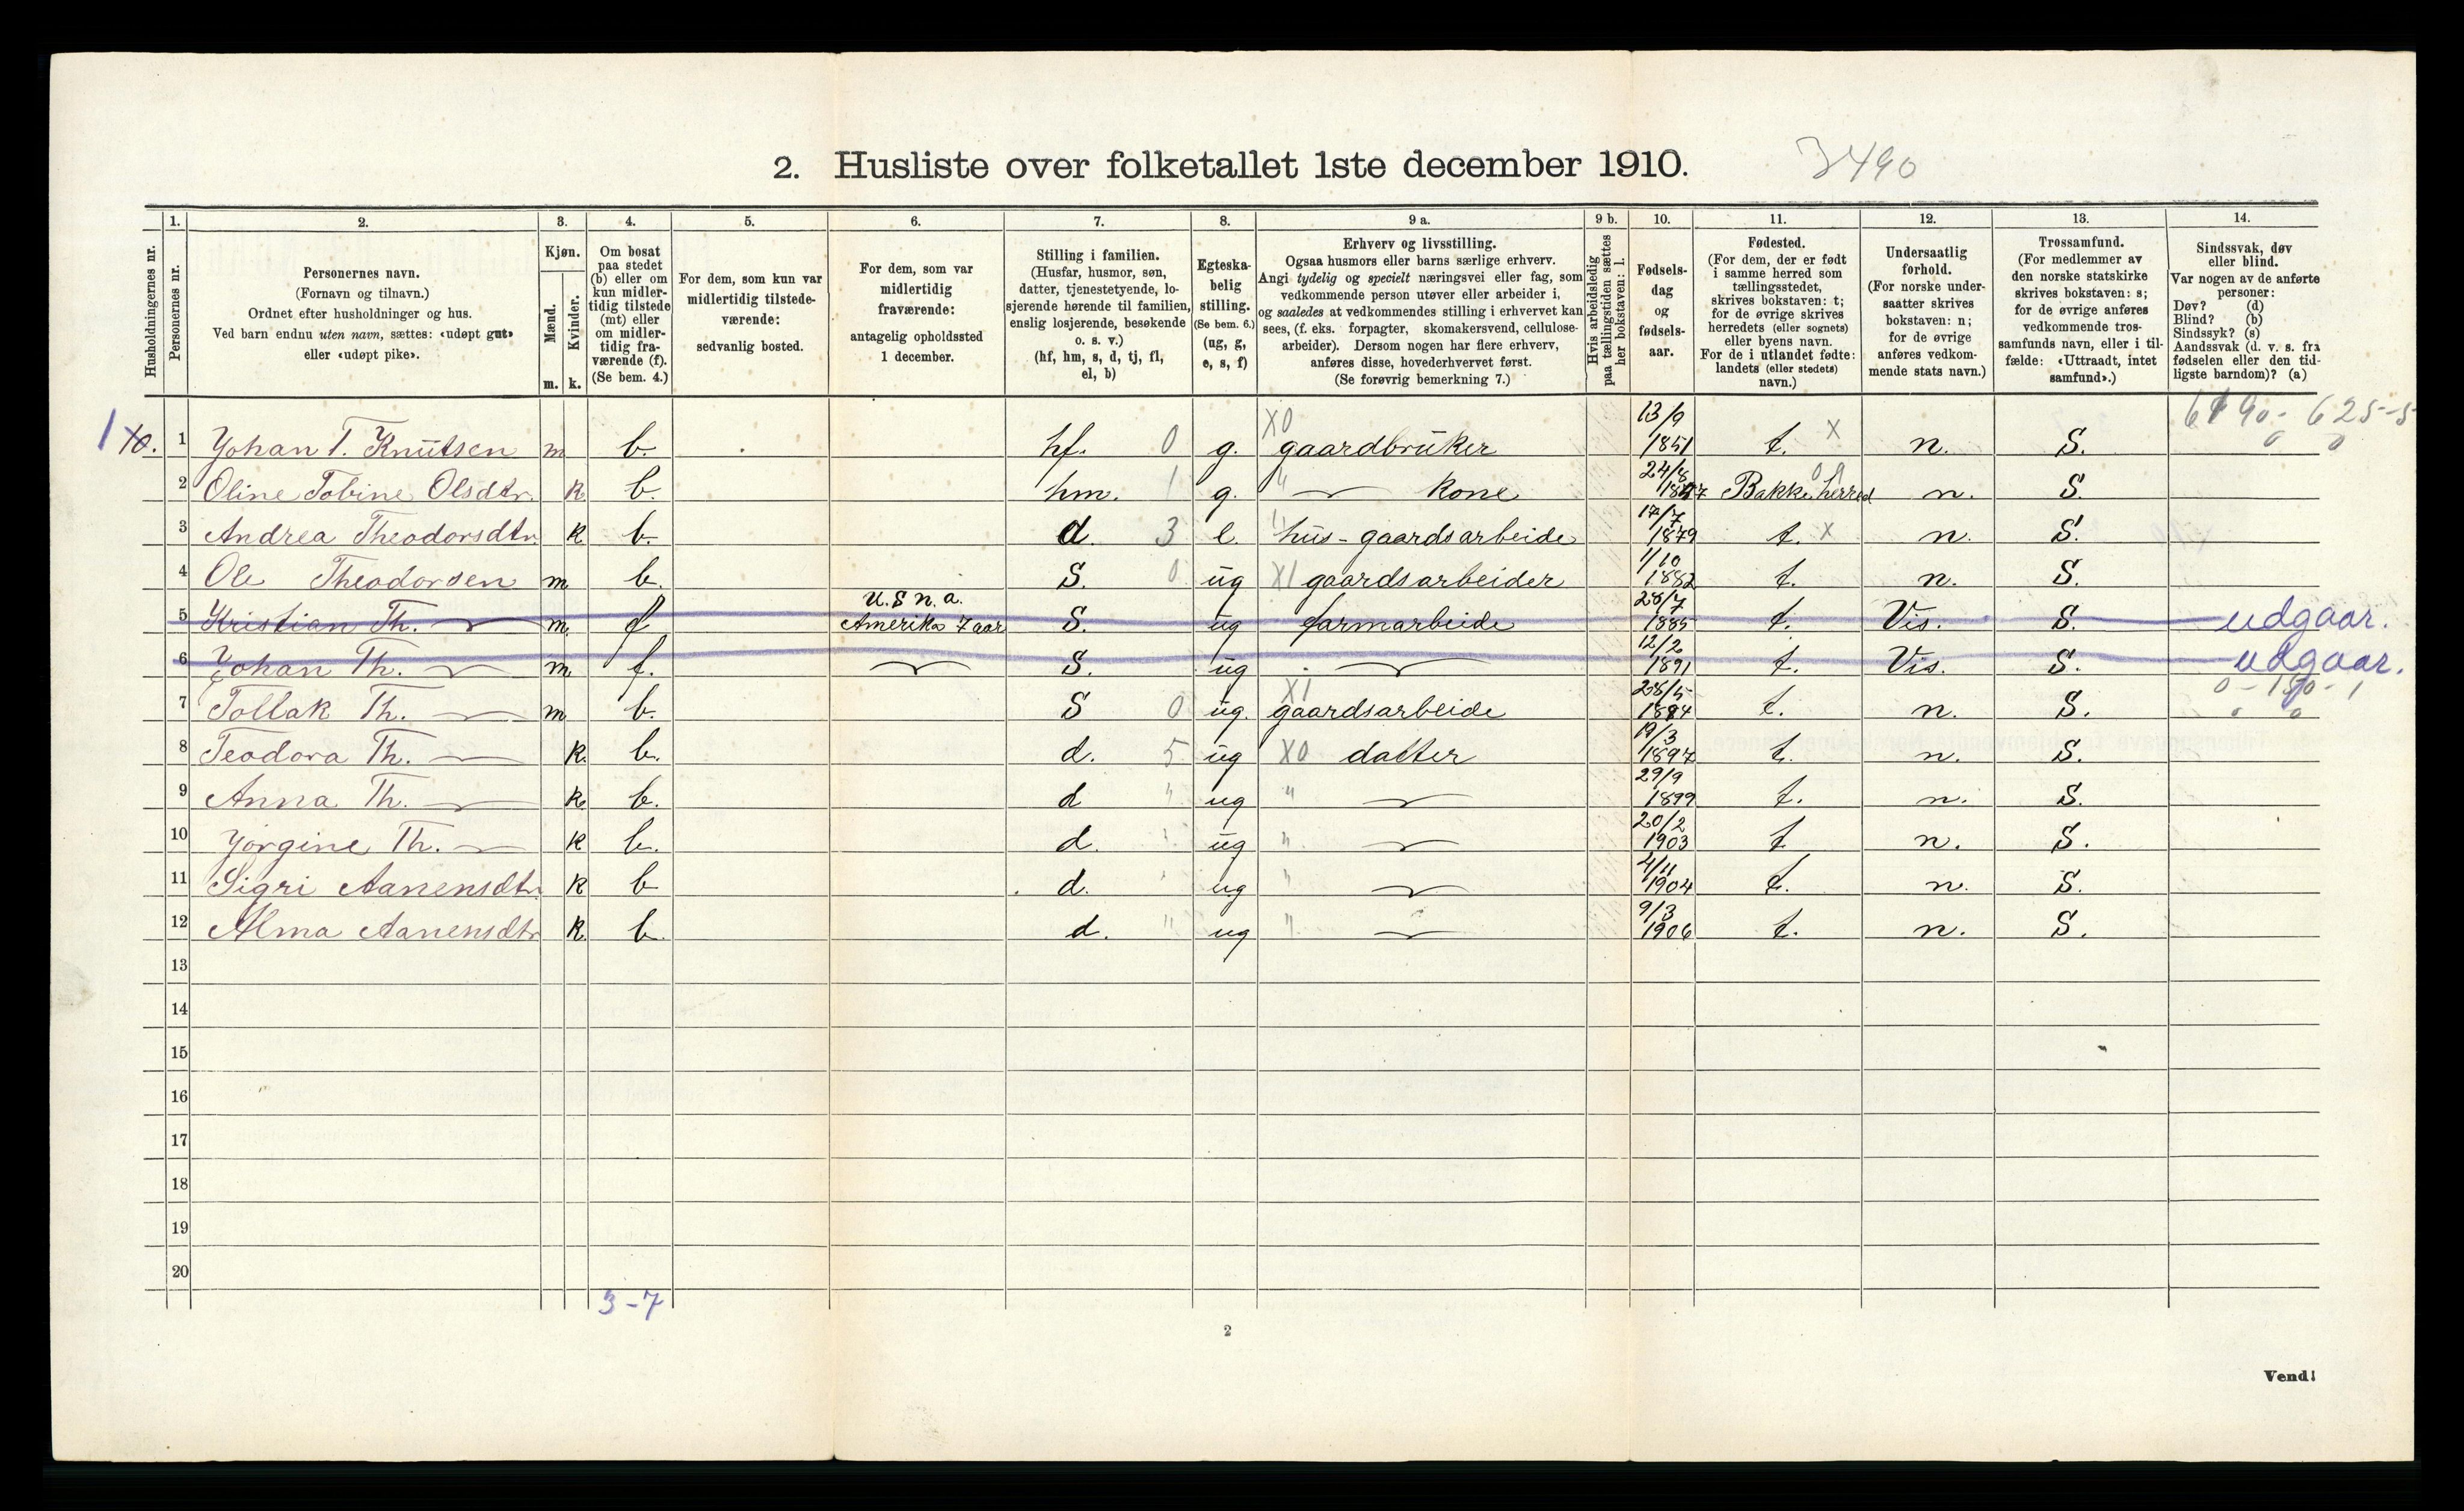 2. Husliste over folketallet 1ste december 1910.
3490
Husholdningernes nr.
1.
Personernes nr.
2.
Personernes navn.
(Fornavn og tilnavn.)
Ordnet efter husholdninger og hus.
Ved barn endnu uten navn, sættes: «udøpt gut»
eller «udøpt pike».
3.
Kjøn.
Mænd.
Kvinder.
m. k.
4.
Om bosat
paa stedet
(b) eller om
kun midler-
tidig tilstede
(mt) eller
om midler-
tidig fra-
værende (f).
(Se bem. 4.)
5.
For dem, som kun var
midlertidig tilstede-
værende:
sedvanlig bosted.
6.
For dem, som var
midlertidig
fraværende:
antagelig opholdssted
1 december.
7.
Stilling i familien.
(Husfar, husmor, søn,
datter, tjenestetyende, lo-
sjerende hørende til familien,
enslig losjerende, besøkende
o. s. v.)
(hf, hm, s, d, tj, fl,
el, b)
8.
Egteska-
belig
stilling.
(Se bem. 6.)
(ug, g,
e, s, f)
9 a.
Erhverv og livsstilling.
Ogsaa husmors eller barns særlige erhverv.
Angi tydelig og specielt næringsvei eller fag, som
vedkommende person utøver eller arbeider i,
og saaledes at vedkommendes stilling i erhvervet kan
sees, (f. eks. forpagter, skomakersvend, cellulose-
arbeider). Dersom nogen har flere erhverv,
anføres disse, hovederhvervet først.
(Se forøvrig bemerkning 7.)
9 b.
Hvis arbeidsledig
paa tællingstiden sættes
her bokstaven: l.
10.
Fødsels-
dag
og
fødsels-
aar.
11.
Fødested.
(For dem, der er født
i samme herred som
tællingsstedet,
skrives bokstaven: t;
for de øvrige skrives
herredets (eller sognets)
eller byens navn.
For de i utlandet fødte:
landets (eller stedets)
navn.)
12.
Undersaatlig
forhold.
(For norske under-
saatter skrives
bokstaven: n;
for de øvrige
anføres vedkom-
mende stats navn.)
13.
Trossamfund.
(For medlemmer av
den norske statskirke
skrives bokstaven: s;
for de øvrige anføres
vedkommende tros-
samfunds navn, eller i til-
fælde: «Uttraadt, intet
samfund».)
14.
Sindssvak, døv
eller blind.
Var nogen av de anførte
personer:
Døv? (d)
Blind? (b)
Sindssyk? (s)
Aandssvak (d. v. s. fra
fødselen eller den tid-
ligste barndom)? (a)
1 Yohan T. Knutsen m b. hf. 0 g. X0 gaardbruker 13/9 1851 t. X n. S.
2 Oline Tobine Olsdtr. k b. hm. 1 g. " kone 24/8 1857 Bakke herred n. S.
3 Andrea Theodorsdtr. k b. d. 3 e. hus-gaardsarbeide 17/7 1879 t. X n. S.
4 Ole Theodorsen m b. S. 0 ug X1 gaardsarbeider 1/10 1882 t. n. S.
5 Kristian Th. m. f U.S n.a. Amerika 7 aar S. ug farmarbeide 28/7 1885 t. Vis. S. udgaar.
6 Yohan Th. m f. S. ug 12/2 1891 t. Vis. S. udgaar.
7 Tollak Th. m b. S 0 ug. X1 gaardsarbeide 28/5 1894 t. n. S.
8 Teodora Th. k. b. d. 5 ug X0 datter 19/3 1897 t. n. S.
9 Anna Th. k. b. d " ug " 29/9 1899 t. n. S.
10 Yorgine Th. k b. d. " ug " 20/2 1903 t n. S.
11 Sigri Aanensdtr. k b d. " ug " 4/11 1904 t. n. S.
12 Alma Aanensdtr k b. d. " ug " 9/3 1906 t. n. S.
13
14
15
16
17
18
19
20
3-7
2
Vend!